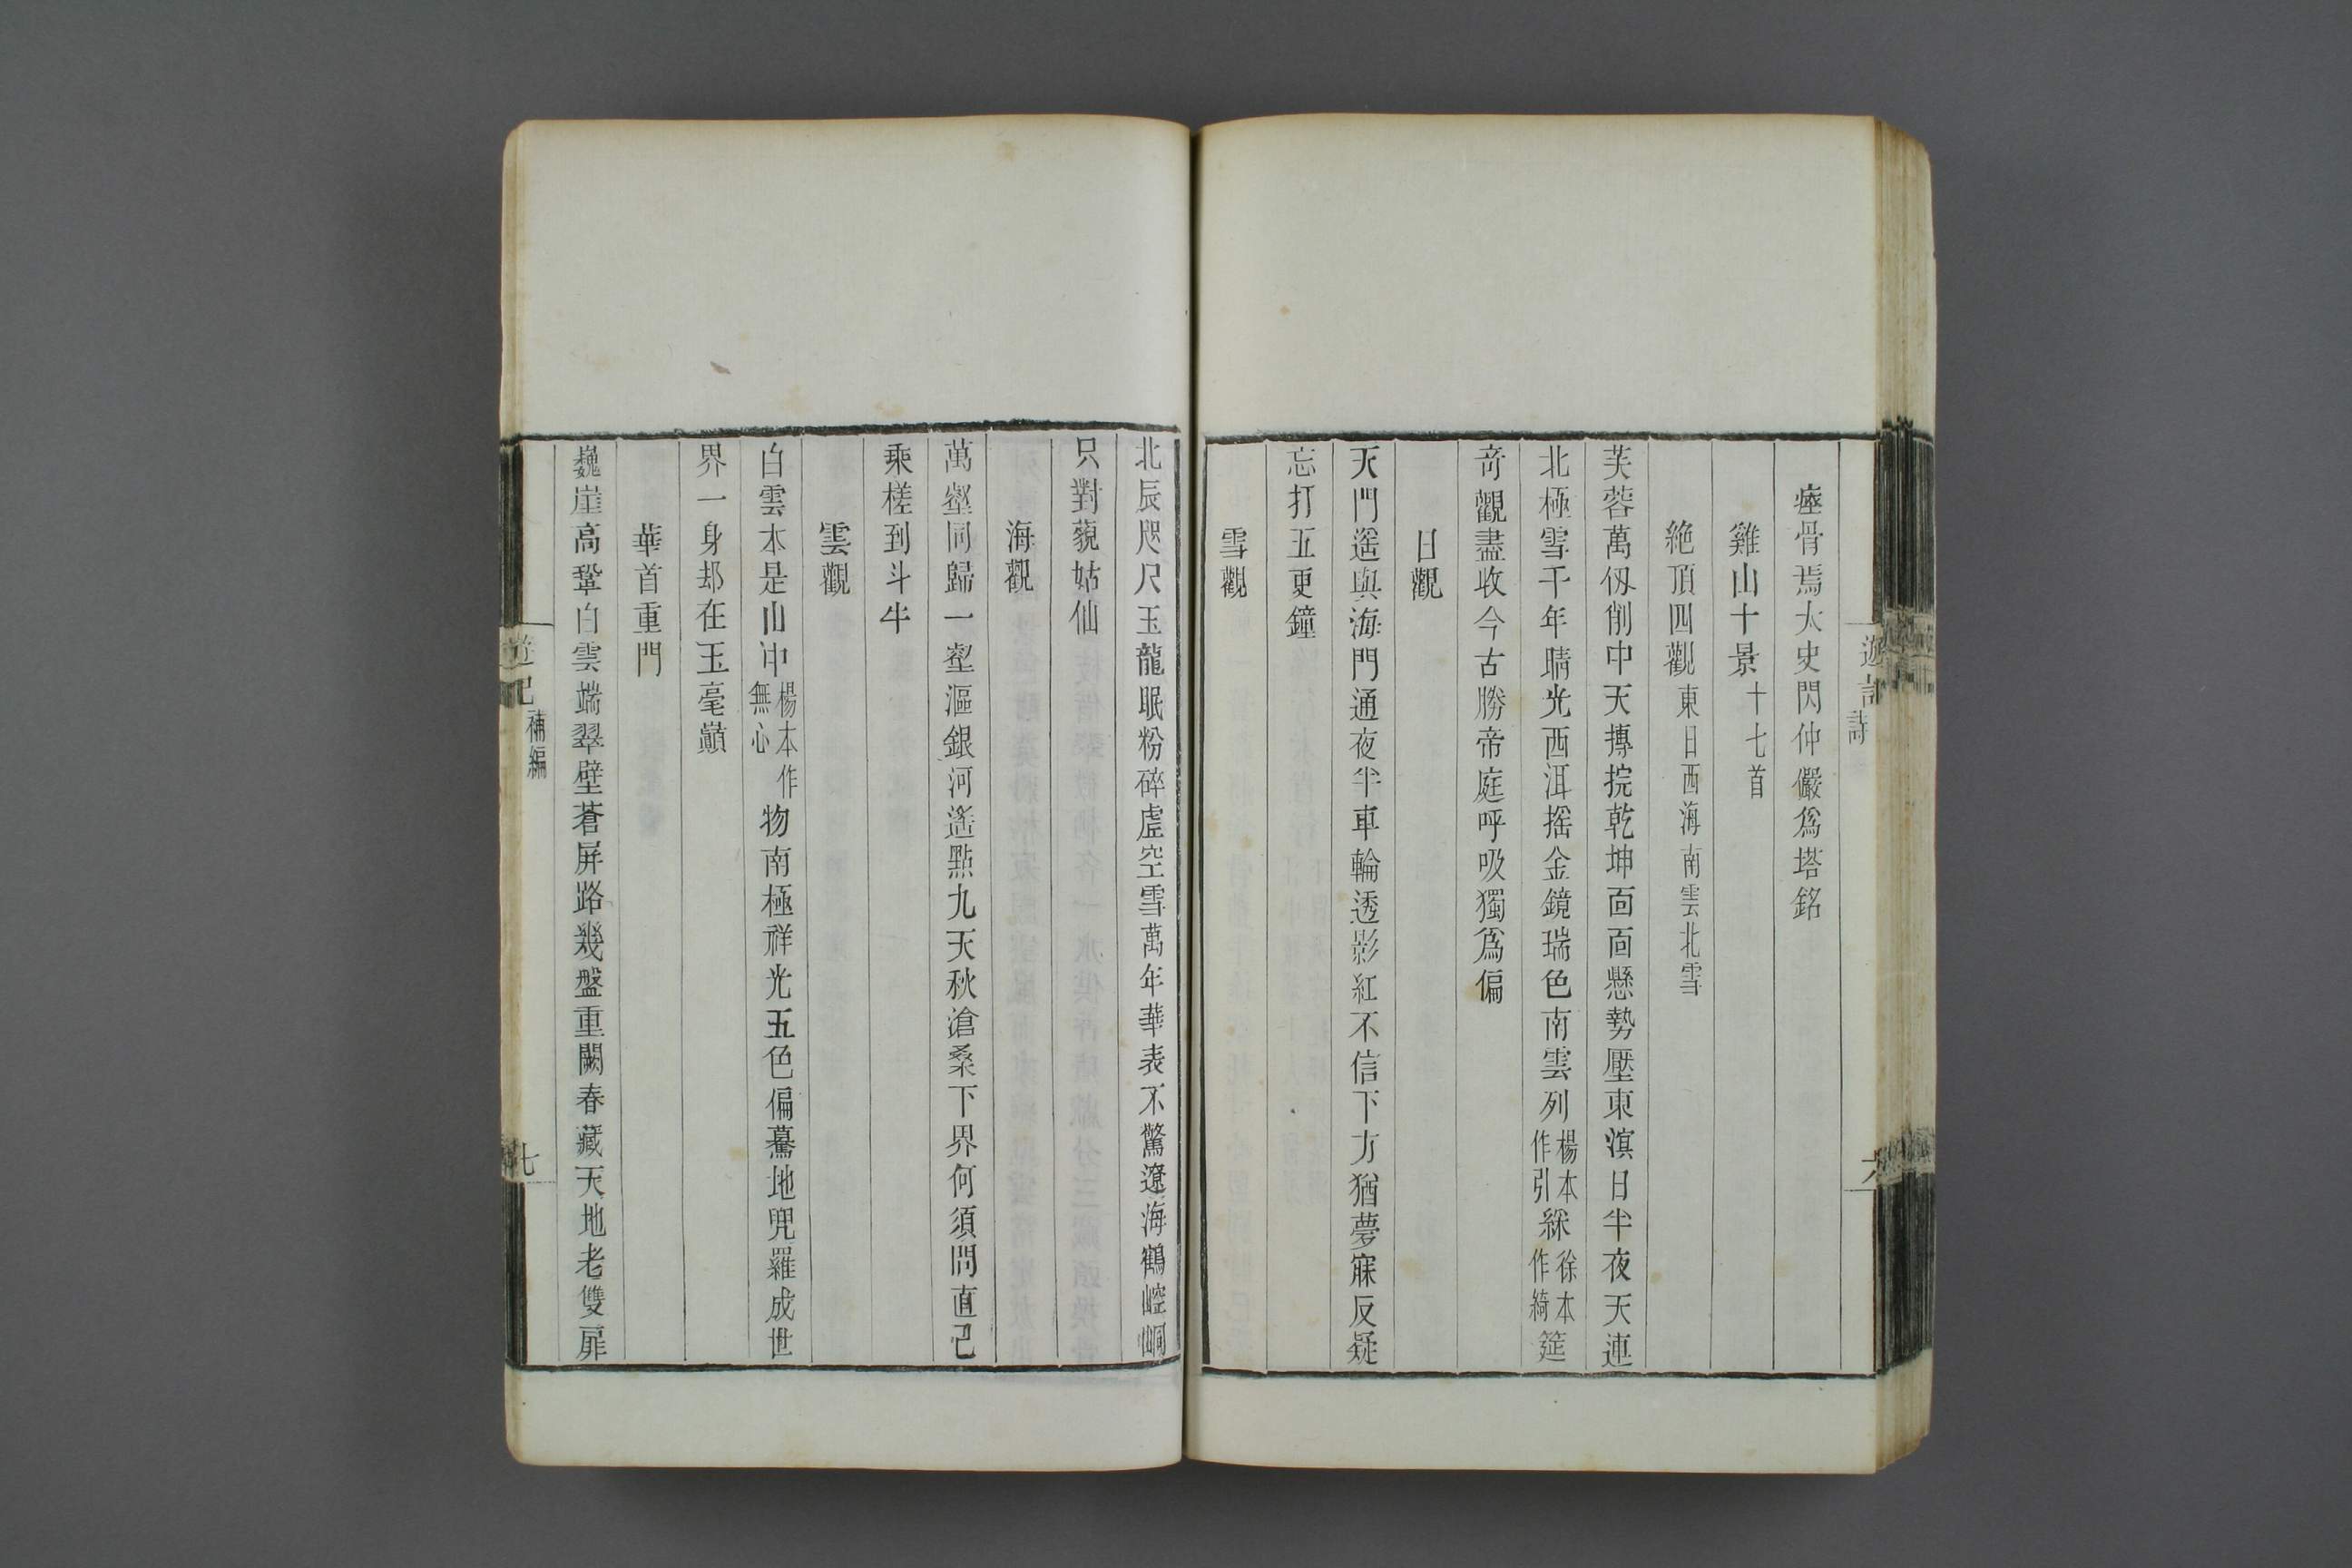 瘞骨焉太史閃仲儼爲塔銘
雞山十景十七首
絶頂四觀東日西海南雲北雪
芙蓉萬仭削中天摶捖乾坤面面懸勢壓東溟日半夜天連
北極雪千年晴光西洱摇金鏡瑞色南雲列楊本作引綵徐本作綺筵
奇觀盡收今古勝帝庭呼吸獨爲偏
日觀
天門遥與海門通夜半車輪透影紅不信下方猶夢寐反疑
忘打五更鐘
雪觀
北辰咫尺玉龍眠粉碎虚空雪萬年華表不驚遼海鶴崆峒
只對藐姑仙
海觀
萬壑同歸一壑漚銀河遥點九天秋滄桑下界何須問直已
乘槎到斗牛
雲觀
白雲本是山中楊本作無心物南極祥光五色偏驀地兜羅成世
界一身却在玉毫巔
華首重門
巍崖高鞏白雲端翠壁蒼屏路幾盤重闕春藏天地老雙扉
遊記 補編
七